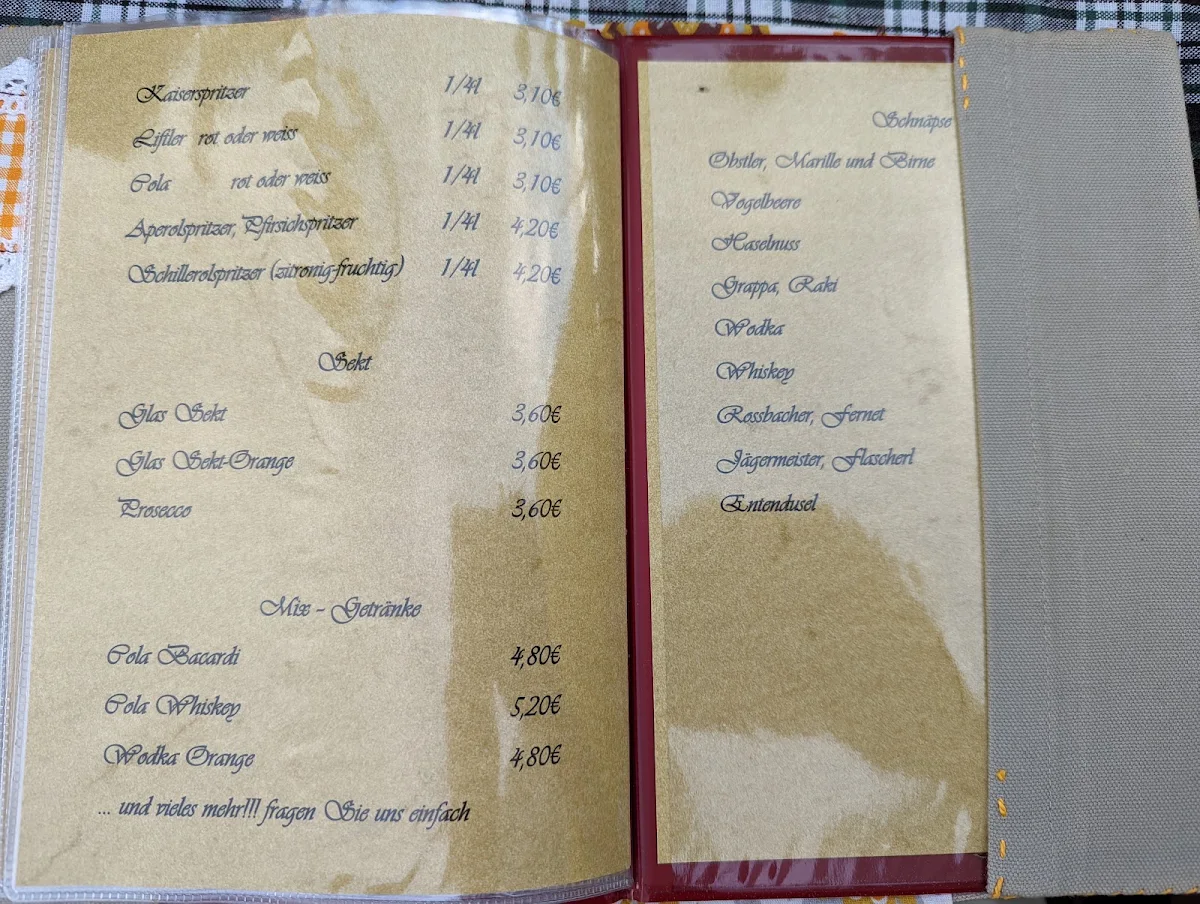 Kaiserspritzer 1/4l 3,10€
Liftler rot oder weiss 1/4l 3,10€
Cola rot oder weiss 1/4l 3,10€
Aperolspritzer, Pfirsichspritzer 1/4l 4,20€
Schillerolspritzer (zitronig-fruchtig) 1/4l 4,20€
Sekt
Glas Sekt 3,60€
Glas Sekt-Orange 3,60€
Prosecco 3,60€
Mix - Getränke
Cola Bacardi 4,80€
Cola Whiskey 5,20€
Wodka Orange 4,80€
... und vieles mehr!!! fragen Sie uns einfach
Schnäpse
Obstler, Marille und Birne
Vogelbeere
Haselnuss
Grappa, Raki
Wodka
Whiskey
Rossbacher, Fernet
Jägermeister, Flascherl
Entendusel